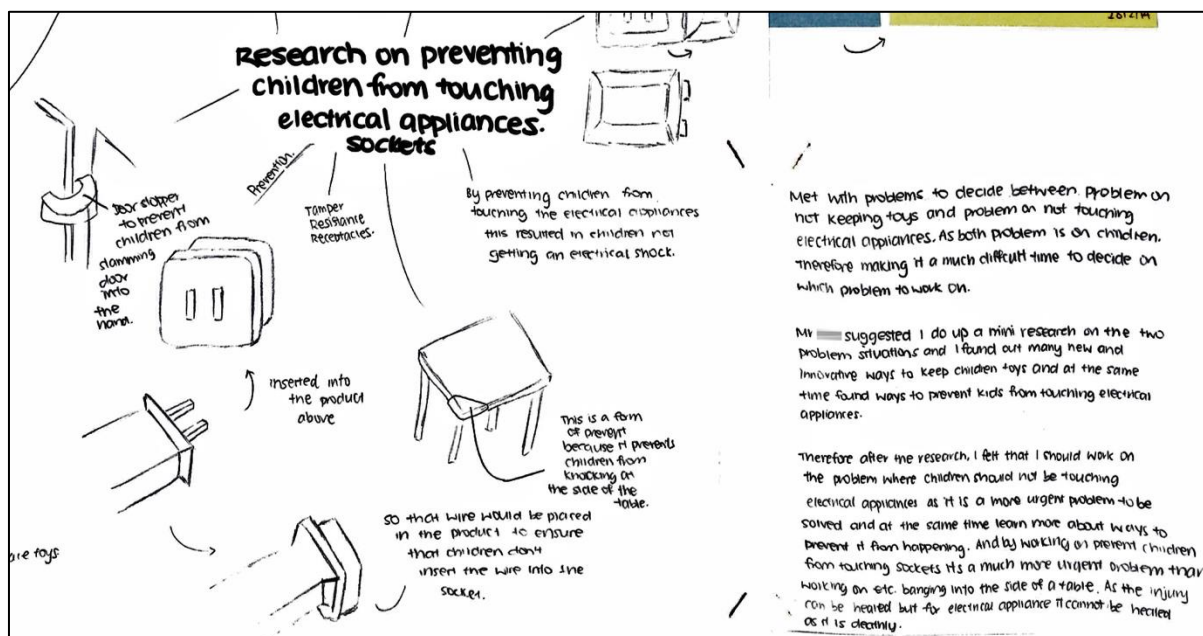 Research on preventing
children from touching
electrical appliances.
sockets
Prevention.
Door stopper
to prevent
children from
slamming
door
into
the
hand.
Tamper
Resistance
Receptacles.
By preventing children from
touching the electrical appliances
this resulted in children not
getting an electrical shock.
inserted into
the product
above
This is a form
of prevent
because it prevents
children from
knocking at
the side of the
table.
so that wire would be placed
in the product to ensure
that children don't
insert the wire into the
socket.
toys
Met with problems to decide between problem on
not keeping toys and problem on not touching
electrical appliances. As both problem is on children.
Therefore making it a much difficult time to decide on
which problem to work on.
Mr suggested I do up a mini research on the two
problem situations and I found out many new and
innovative ways to keep children toys and at the same
time found ways to prevent kids from touching electrical
appliances.
Therefore after the research, I felt that I should work on
the problem where children should not be touching
electrical appliances as it is a more urgent problem to be
solved and at the same time learn more about ways to
prevent it from happening. And by working on prevent children
from touching sockets its a much more urgent problem than
working on etc. banging into the side of a table. As the injury
can be healed but for electrical appliance it cannot be healed
as it is deathly.